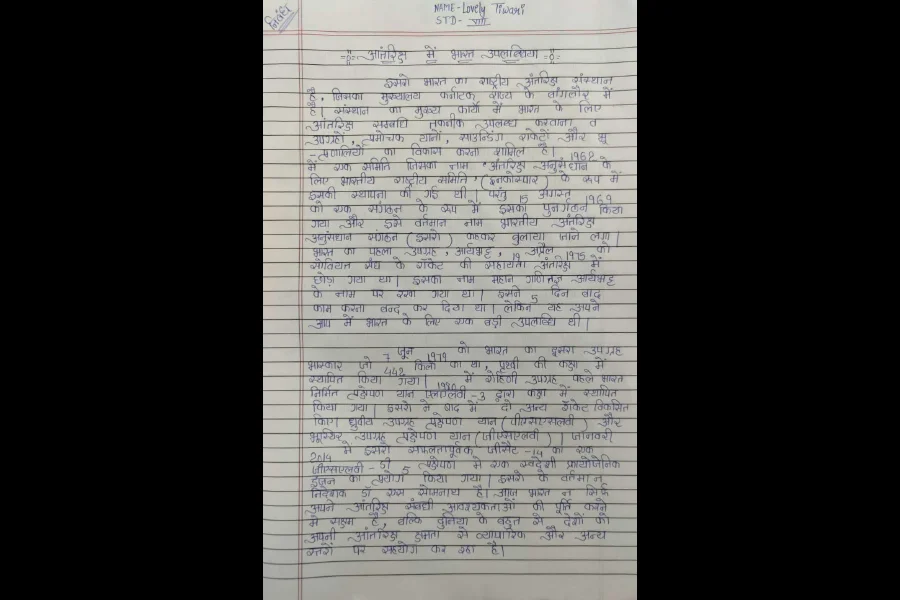 निबंध
NAME-Lovely Tiwari
STD- VIII
अंतरिक्ष में भारत उपलब्धियां
इसरो भारत का राष्ट्रीय अंतरिक्ष संस्थान
है, जिसका मुख्यालय कर्नाटक राज्य के बांगलौर में
है। संस्थान का मुख्य कार्यो में भारत के लिए
अंतरिक्ष सम्बधि तकनीक उपलब्ध करवाना व
उपग्रहों, प्रमोचक यानों, साउन्डिंग राकेटों और भू
-प्रणालियों का विकास करना शामिल है। 1962
में एक समिति जिसका नाम 'अंतरिक्ष अनुसंधान के
लिए भारतीय राष्ट्रीय समिति' (इनकोस्पार) के रूप में
इसकी स्थापना की गई थी। परंतु 15 अगस्त 1969
को एक संगठन के रूप में इसका पुनर्गठन किया
गया और इसे वर्तमान नाम भारतीय अंतरिक्ष
अनुसंधान संगठन (इसरो) कहकर बुलाया जाने लगा।
भारत का पहला उपग्रह, आर्यभट्ट, 19 अप्रैल 1975 को
सोवियत संघ के रॉकेट की सहायता अंतरिक्ष में
छोड़ा गया था। इसका नाम महान गणितज्ञ आर्यभट्ट
के नाम पर रखा गया था। इसने 5 दिन बाद
काम करना बन्द कर दिया था। लेकिन यह अपने
आप में भारत के लिए एक बड़ी उपलब्धि थी।
7 जून 1979 को भारत का दूसरा उपग्रह
भास्कार जो 442 किलो का था, पृथ्वी की कक्षा में
स्थापित किया गया। 1980 में रोहिणी उपग्रह पहले भारत
निर्मित प्रक्षेपण यान एसएलवी-3 द्वारा कक्षा में स्थापित
किया गया। इसरो ने बाद में दो अन्य रॉकेट विकसित
किए। ध्रुवीय उपग्रह प्रक्षेपण यान (पीएसएलवी) और
भूस्थिर उपग्रह प्रक्षेपण यान (जीएसएलवी)। जानवरी
2014 में इसरो सफलतापूर्वक जीसैट-14 का एक
जीएसएलवी-डी 5 प्रक्षेपण में एक स्वदेशी क्रायोजेनिक
इंजन का प्रयोग किया गया। इसरो के वर्तमान
निदेशक डॉ एस सोमनाथ है। आज भारत न सिर्फ
अपने अंतरिक्ष संबधी आवश्यकताओं की पूर्ति करने
में सक्षम है, बल्कि दुनिया के बहुत से देशों को
अपनी अंतरिक्ष क्षमता से व्यापारिक और अन्य
स्तरों पर सहयोग कर रहा है।